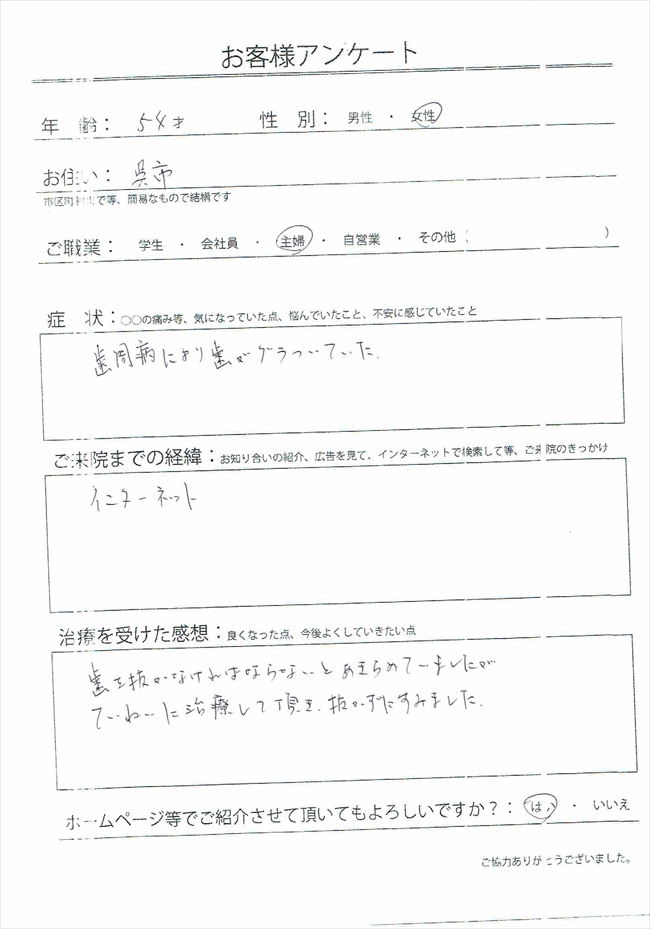 お客様アンケート
年 齢： 54才 性 別： 男性 ・ 女性
お住い： 呉市
市区町村まで等、簡易なもので結構です
ご職業： 学生 ・ 会社員 ・ 主婦 ・ 自営業 ・ その他（ ）
症 状：○○の痛み等、気になっていた点、悩んでいたこと、不安に感じていたこと
歯周病により歯がグラついていた.
ご来院までの経緯：お知り合いの紹介、広告を見て、インターネットで検索して等、ご来院のきっかけ
インターネット
治療を受けた感想：良くなった点、今後よくしていきたい点
歯を抜かなければならないとあきらめていましたが
ていねいに治療して頂き、抜かずにすみました.
ホームページ等でご紹介させて頂いてもよろしいですか？： はい ・ いいえ
ご協力ありがとうございました。